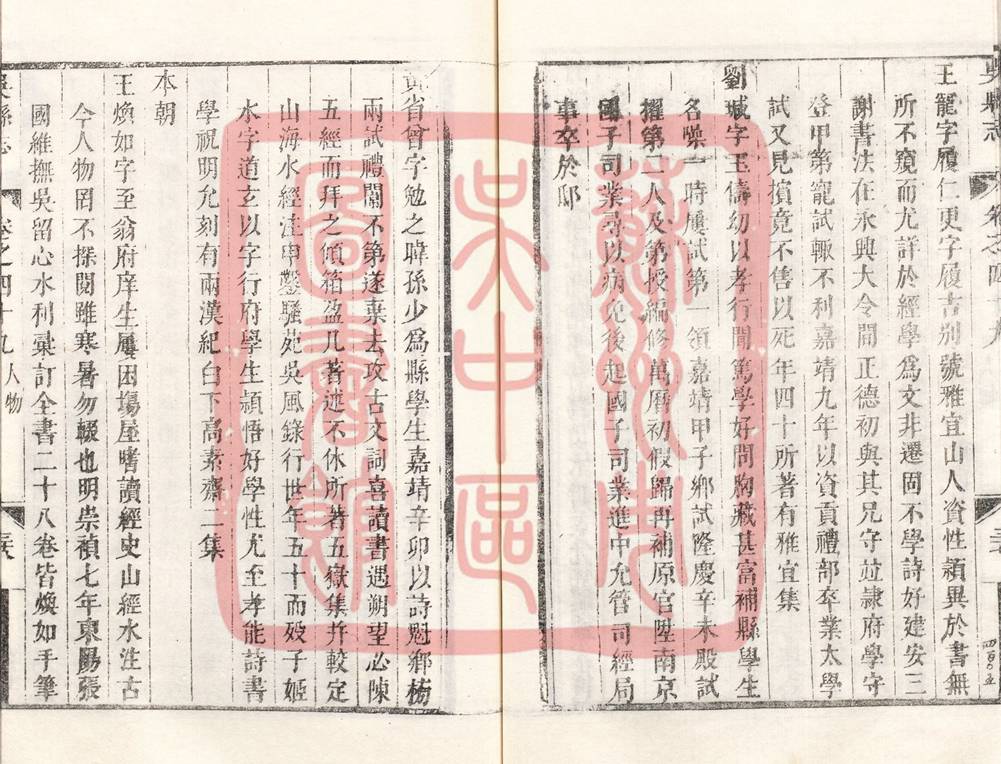 吳縣志
卷之四十九
王寵字履仁更字履吉別號雅宜山人資性穎異於書無
所不窺而尤詳於經學爲文非遷固不學詩好建安三
謝書法在永興大令間正德初與其兄守竝隸府學守
登甲第寵試輒不利嘉靖九年以資貢禮部卒業太學
試又見擯竟不售以死年四十所著有雅宜集
劉瑊字玉儔幼以孝行聞篤學好問胸藏甚富補縣學生
名噪一時屢試第一領嘉靖甲子鄉試隆慶辛未殿試
擢第二人及第授編修萬曆初假歸再補原官陞南京
國子司業尋以病免後起國子司業進中允管司經局
事卒於邸
黃省曾字勉之暐孫少爲縣學生嘉靖辛卯以詩魁鄉榜
兩試禮闈不第遂棄去攻古文詞喜讀書遇朔望必陳
五經而拜之傾箱盈几著述不休所著五嶽集幷較定
山海水經注申鑒騷苑吳風錄行世年五十而歿子姬
水字道玄以字行府學生穎悟好學性尤至孝能詩書
學祝明允刻有兩漢紀白下高素齋二集
本朝
王煥如字至翁府庠生屢困場屋嗜讀經史山經水注古
今人物罔不探閱雖寒暑勿輟也明崇禎七年東陽張
國維撫吳留心水利彙訂全書二十八卷皆煥如手筆
吳縣志
卷之四十九 人物
蘇州市
吳中區
圖書館